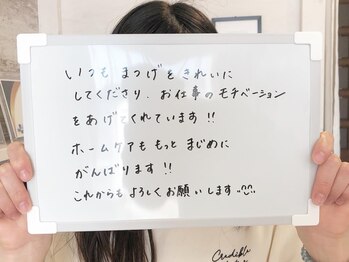 いつもまつげをきれいに
してくださり、お仕事のモチベーション
をあげてくれています!!
ホームケアももっとまじめに
がんばります!!
これからもよろしくお願いします
Credible